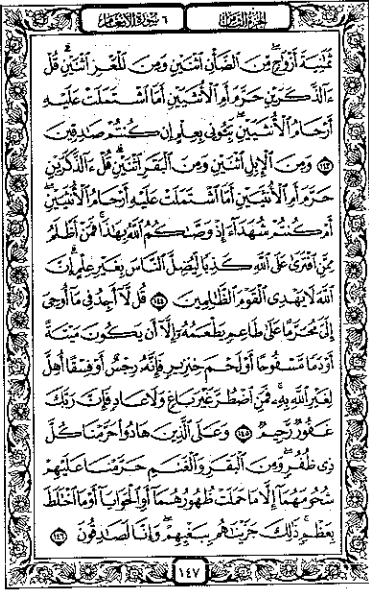 الجزء الثامن
٦ سورة الأنعام
ثَمَٰنِيَةَ أَزْوَٰجٍۖ مِّنَ ٱلضَّأْنِ ٱثْنَيْنِ وَمِنَ ٱلْمَعْزِ ٱثْنَيْنِۗ قُلْ
ءَآلذَّكَرَيْنِ حَرَّمَ أَمِ ٱلْأُنثَيَيْنِ أَمَّا ٱشْتَمَلَتْ عَلَيْهِ
أَرْحَامُ ٱلْأُنثَيَيْنِۖ نَبِّـُٔونِى بِعِلْمٍ إِن كُنتُمْ صَٰدِقِينَ
١٤٣ وَمِنَ ٱلْإِبِلِ ٱثْنَيْنِ وَمِنَ ٱلْبَقَرِ ٱثْنَيْنِۗ قُلْ ءَآلذَّكَرَيْنِ
حَرَّمَ أَمِ ٱلْأُنثَيَيْنِ أَمَّا ٱشْتَمَلَتْ عَلَيْهِ أَرْحَامُ ٱلْأُنثَيَيْنِۖ
أَمْ كُنتُمْ شُهَدَآءَ إِذْ وَصَّىٰكُمُ ٱللَّهُ بِهَٰذَاۚ فَمَنْ أَظْلَمُ
مِمَّنِ ٱفْتَرَىٰ عَلَى ٱللَّهِ كَذِبًا لِّيُضِلَّ ٱلنَّاسَ بِغَيْرِ عِلْمٍۗ إِنَّ
ٱللَّهَ لَا يَهْدِى ٱلْقَوْمَ ٱلظَّٰلِمِينَ ١٤٤ قُل لَّآ أَجِدُ فِى مَآ أُوحِىَ
إِلَىَّ مُحَرَّمًا عَلَىٰ طَاعِمٍ يَطْعَمُهُۥٓ إِلَّآ أَن يَكُونَ مَيْتَةً
أَوْ دَمًا مَّسْفُوحًا أَوْ لَحْمَ خِنزِيرٍ فَإِنَّهُۥ رِجْسٌ أَوْ فِسْقًا أُهِلَّ
لِغَيْرِ ٱللَّهِ بِهِۦۚ فَمَنِ ٱضْطُرَّ غَيْرَ بَاغٍ وَلَا عَادٍ فَإِنَّ رَبَّكَ
غَفُورٌ رَّحِيمٌ ١٤٥ وَعَلَى ٱلَّذِينَ هَادُوا۟ حَرَّمْنَا كُلَّ
ذِى ظُفُرٍۖ وَمِنَ ٱلْبَقَرِ وَٱلْغَنَمِ حَرَّمْنَا عَلَيْهِمْ
شُحُومَهُمَآ إِلَّا مَا حَمَلَتْ ظُهُورُهُمَآ أَوِ ٱلْحَوَايَآ أَوْ مَا ٱخْتَلَطَ
بِعَظْمٍۚ ذَٰلِكَ جَزَيْنَٰهُم بِبَغْيِهِمْۖ وَإِنَّا لَصَٰدِقُونَ ١٤٦
١٤٧